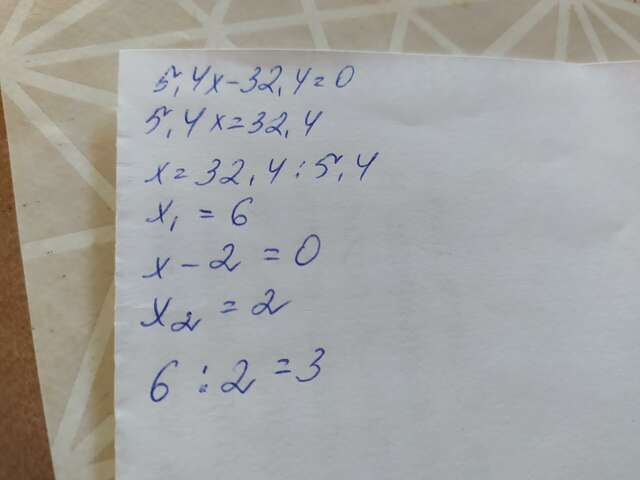 5,4x-32,4=0
5,4x=32,4
x=32,4:5,4
x₁=6
x-2=0
x₂=2
6:2=3